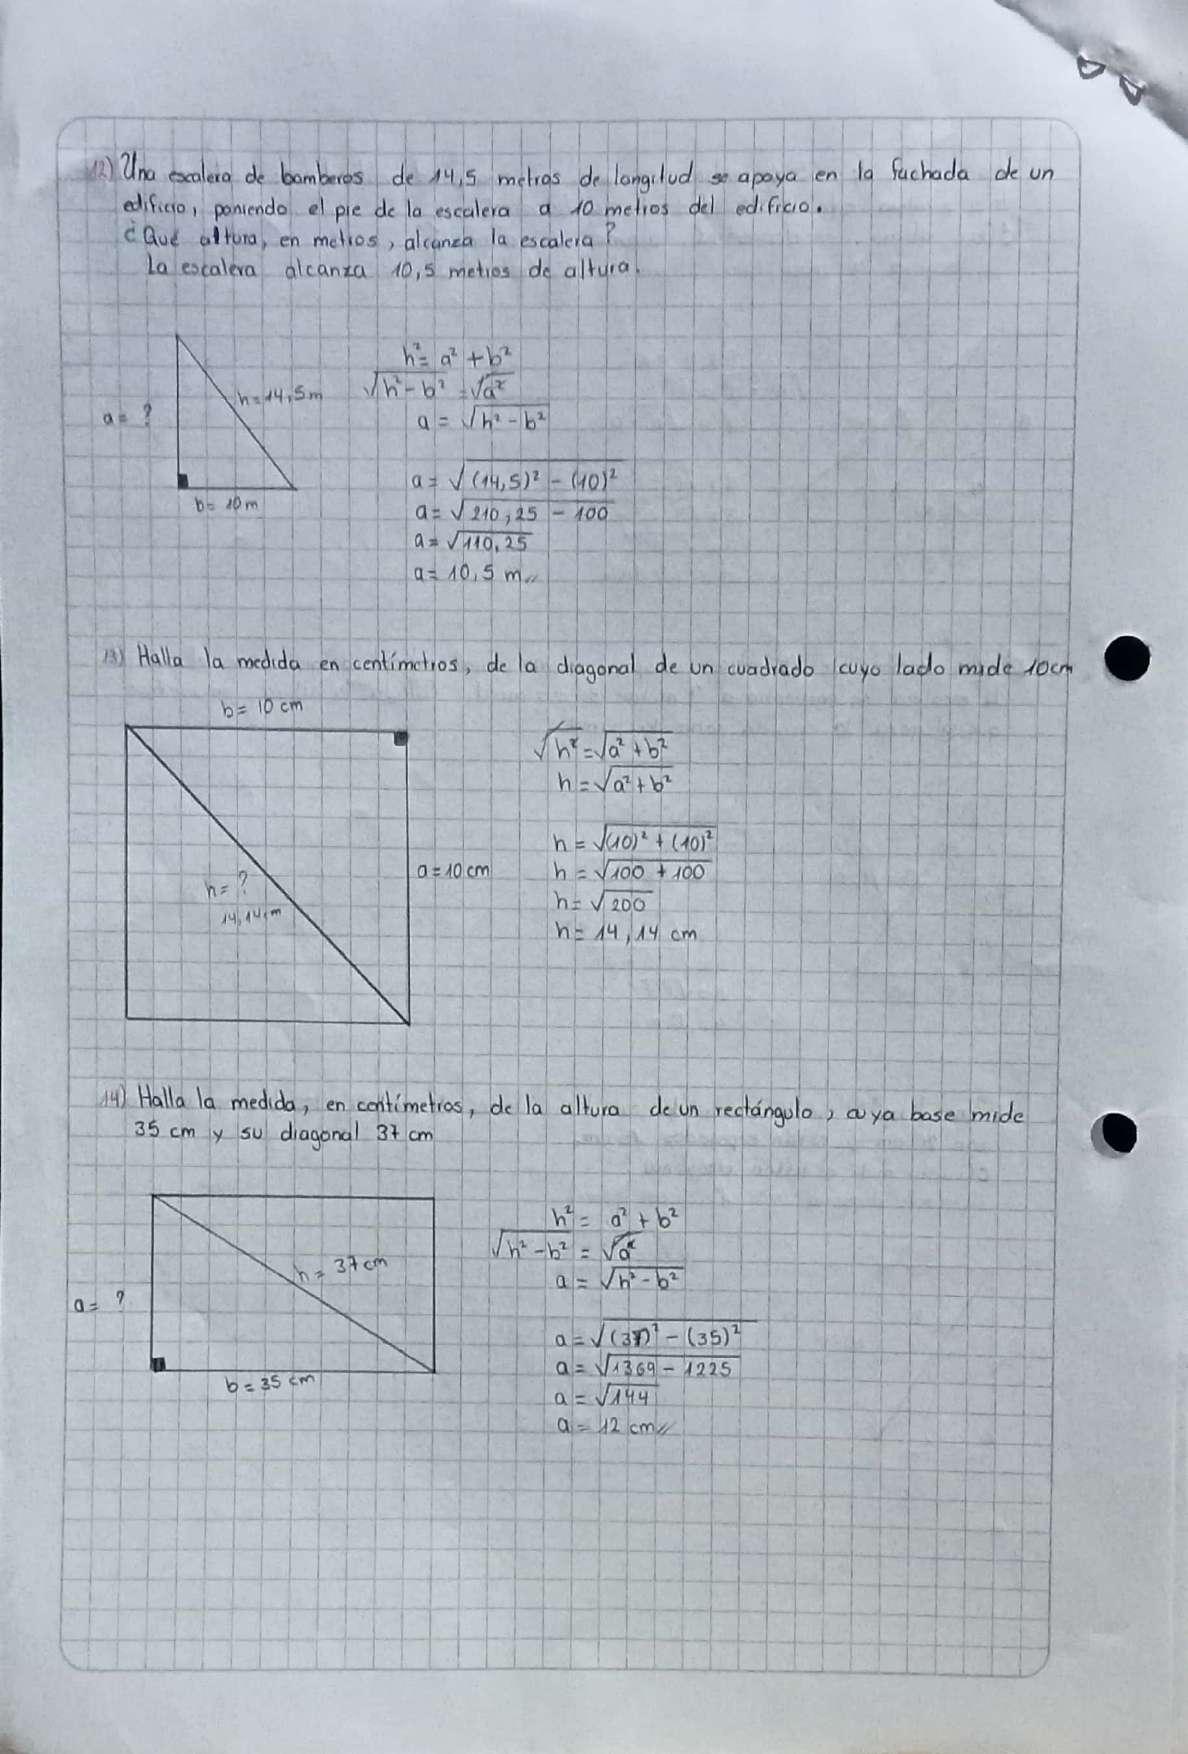 12) Una escalera de bomberos de 14,5 metros de longitud se apoya en la fachada de un
edificio, poniendo el pie de la escalera a 10 metros del edificio.
¿Qué altura, en metros, alcanza la escalera?
La escalera alcanza 10,5 metros de altura.
h² = a² + b²
√h² - b² = √a²
a = √h² - b²
h = 14,5 m
a = ?
b = 10 m
a = √(14,5)² - (10)²
a = √210,25 - 100
a = √110,25
a = 10,5 m //
13) Halla la medida en centímetros, de la diagonal de un cuadrado cuyo lado mide 10cm
b = 10 cm
√h² = √a² + b²
h = √a² + b²
h = √(10)² + (10)²
h = √100 + 100
h = √200
h = 14,14 cm
a = 10 cm
h = ?
14,14cm
14) Halla la medida, en centímetros, de la altura de un rectángulo, cuya base mide
35 cm y su diagonal 37 cm
h² = a² + b²
√h² - b² = √a²
a = √h² - b²
h = 37 cm
a = ?
b = 35 cm
a = √(37)² - (35)²
a = √1369 - 1225
a = √144
a = 12 cm //